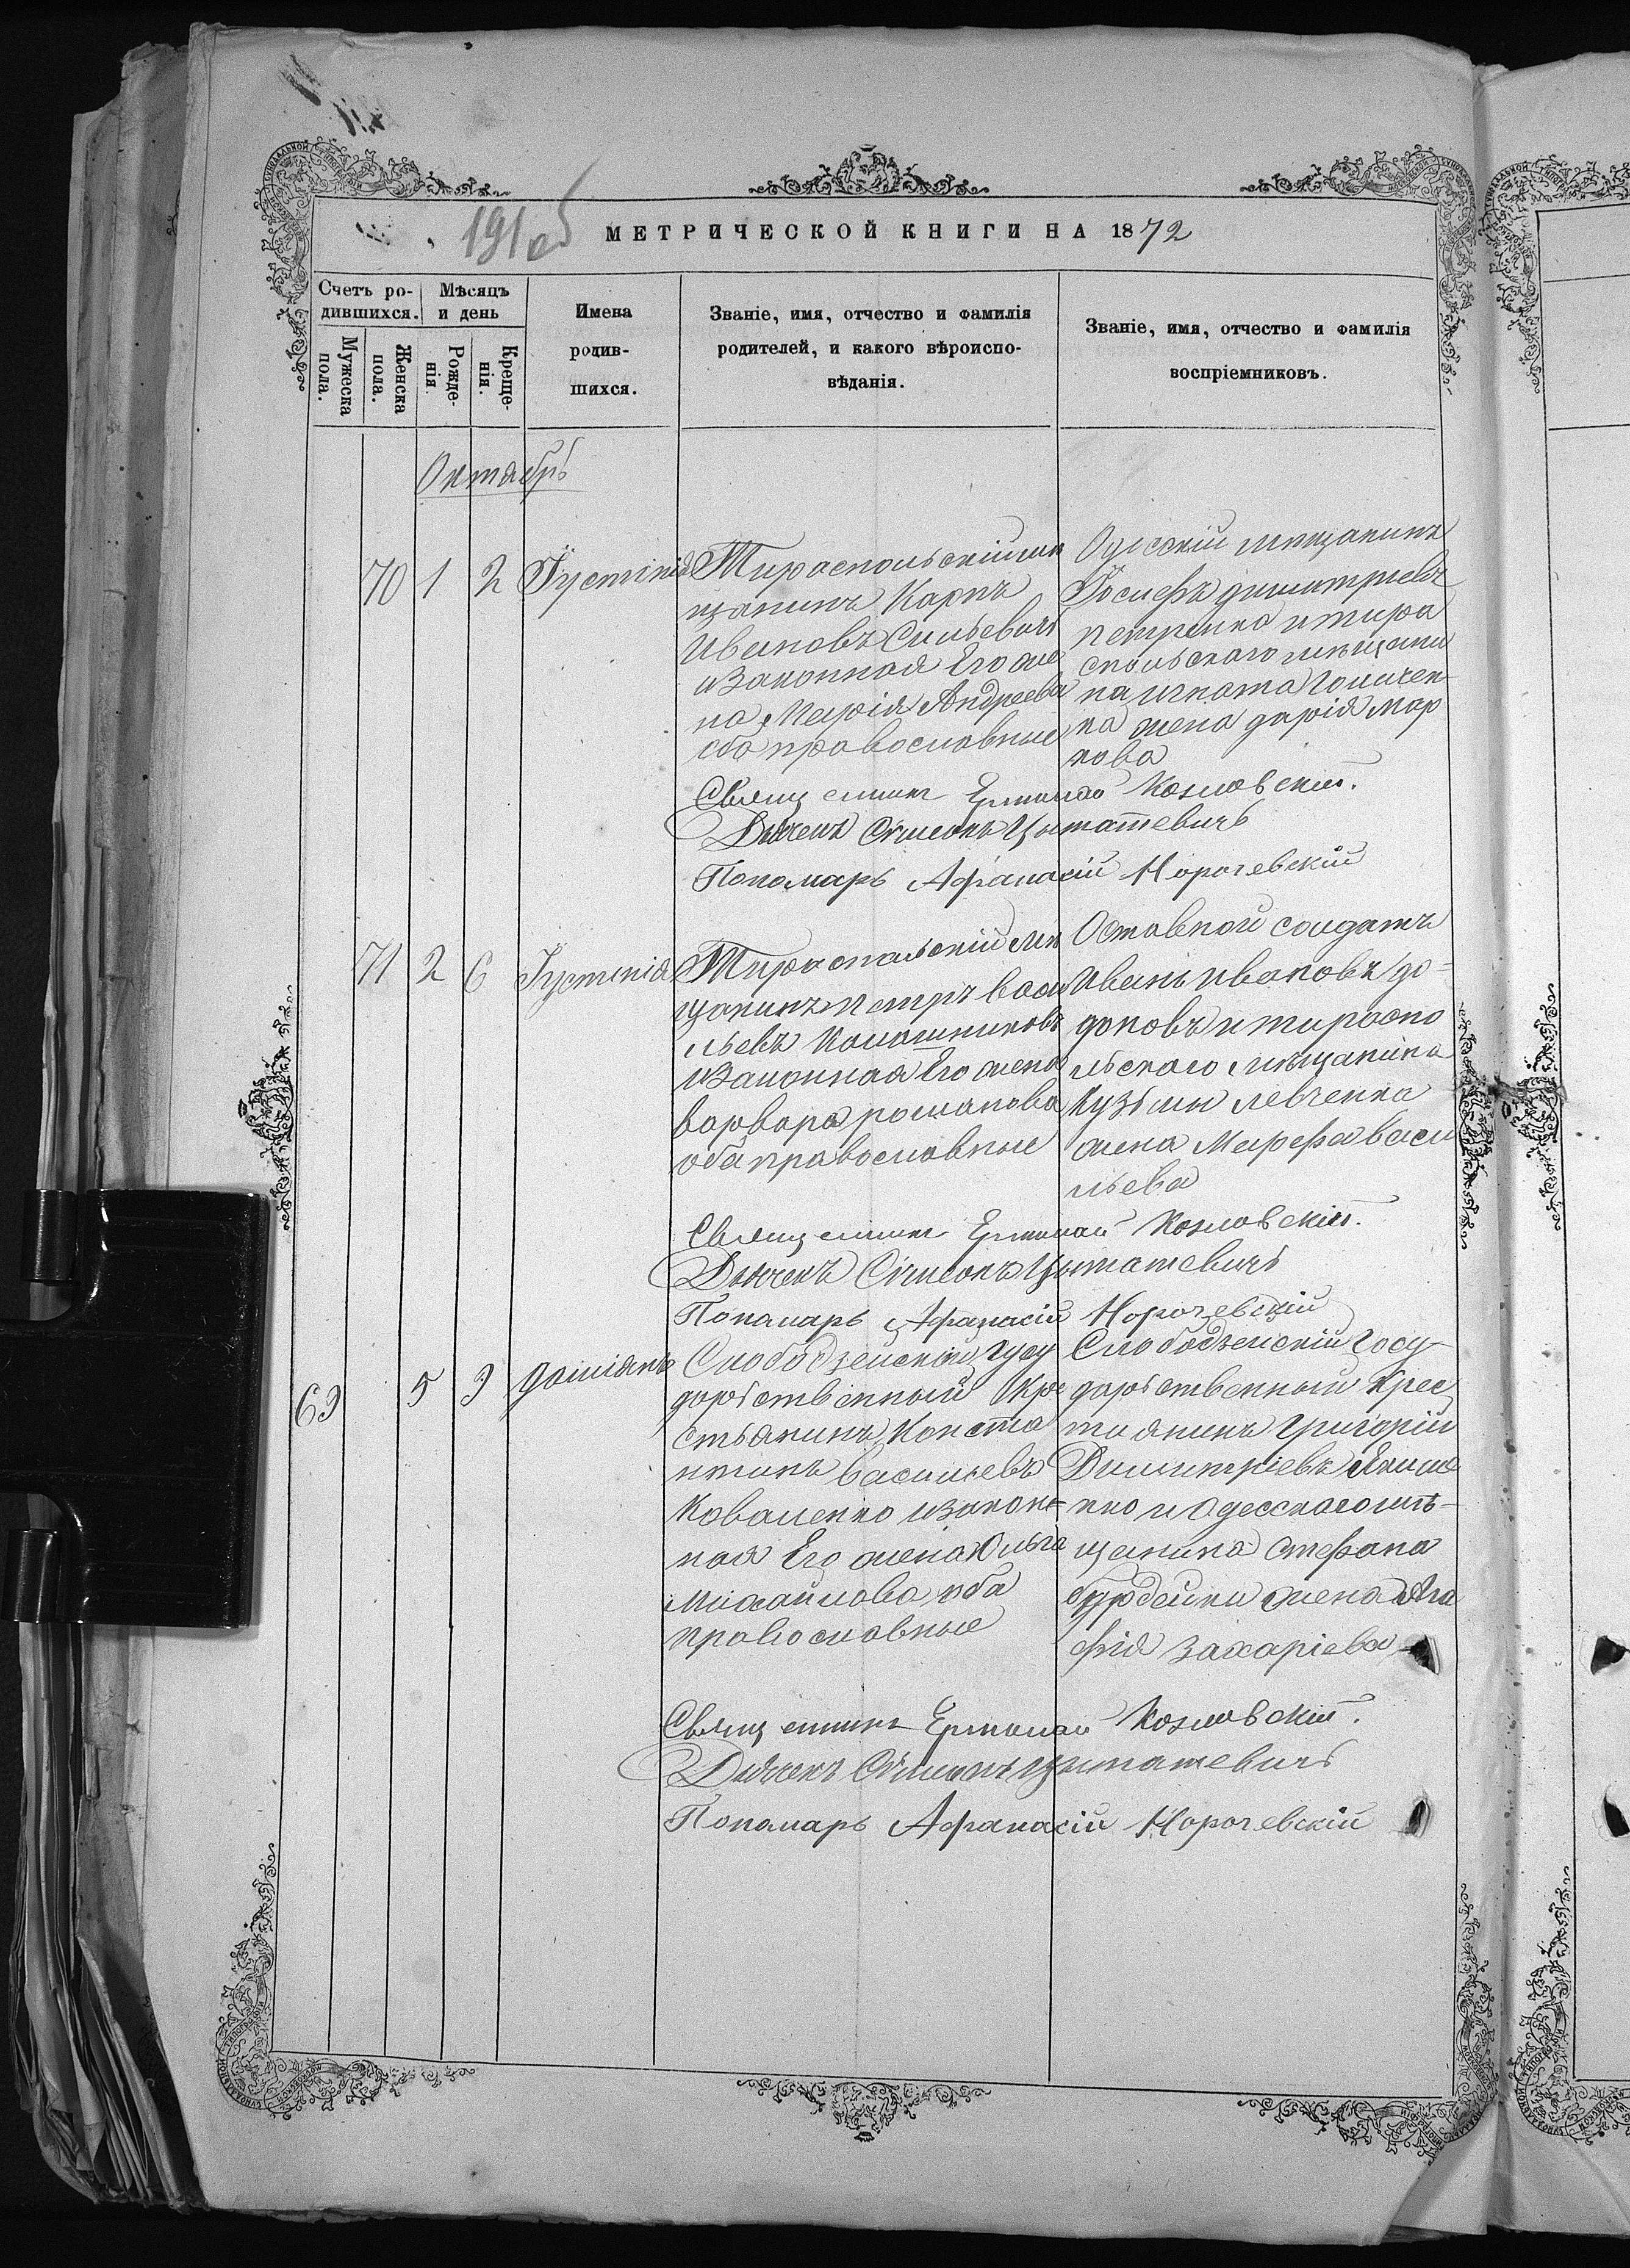 191об
МЕТРИЧЕСКОЙ КНИГИ НА 1872
Счетъ ро-
дившихся.
Мѣсяцъ
и день
Мужеска
пола.
Женска
пола.
Рожде-
нія
Креще-
нія.
Имена
родив-
шихся.
Званіе, имя, отчество и фамилія
родителей, и какого вѣроиспо-
вѣданія.
Званіе, имя, отчество и фамилія
воспріемниковъ.
Октябрь
70 1 2 Іустинія
Тираспольскій мѣ
щанинъ Карпъ
Ивановъ
и Законная Его же
на Марія Андреева
оба православные
Одесскій мещанинъ
Іосифъ димитріевъ
петренко и тира
спольскаго мѣщани
на игната
ка жена дарія мар
кова
Священникъ Ермолай Козловскій.
Дьячекъ Сѵмеонъ
Пономарь Афанасій Корочевскій
71 2 6 Іустинія
Тираспольскій мѣ
щанинъ петръ васи
льевъ Калашниковъ
и Законная Его жена
варвара романова
оба православные
Отставной солдатъ
Иванъ Ивановъ до=
доновъ и тираспо
льскаго мѣщанина
Кузьмы левченка
жена Марфа васи
льева
Священникъ Ермолай Козловскій.
Дьячекъ Сѵмеонъ
Пономарь Афанасій Корочевскій
69 5 9 даміянъ
Слободзейскій госу
дарственный Кре
стьянинъ Конста
нтинъ васильевъ
Коваленко и закон-
ная Его жена Ольга
Михайлова оба
православные
Слободзейскій госу-
дарственный Крес
тиянинъ Григорій
Димитріевъ Якиме
нко и Одесскаго мѣ-
щанина стефана
бурдейки жена Ага
фія захаріева
Священникъ Ермолай Козловскій.
Дьячекъ Сѵмеонъ
Пономарь Афанасій Корочевскій